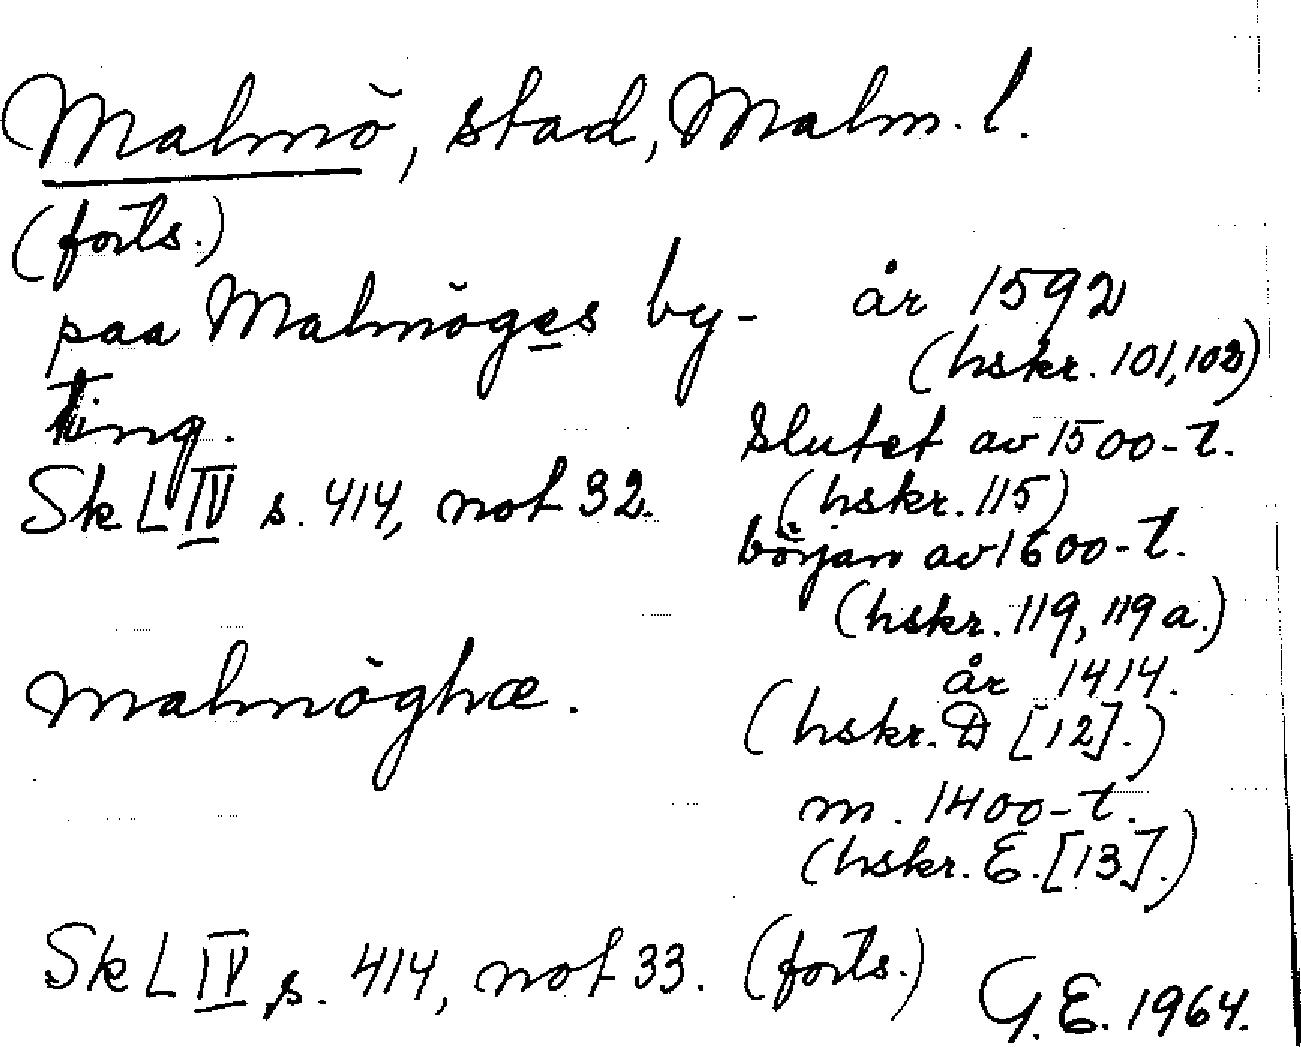 Malmö, stad, Malm. l.
(forts.)
paa Malmöges by-
ting.
år 1592
(hskr. 101, 102)
Slutet av 1500-t.
(hskr. 115)
början av 1600-t.
(hskr. 119, 119 a.)
Sk L IV s. 414, not 32.
Malmöghæ.
år 1414.
(hskr. D [12].)
m. 1400-t.
(hskr. E. [13].)
Sk L IV s. 414, not 33. (forts.)
G. E. 1964.